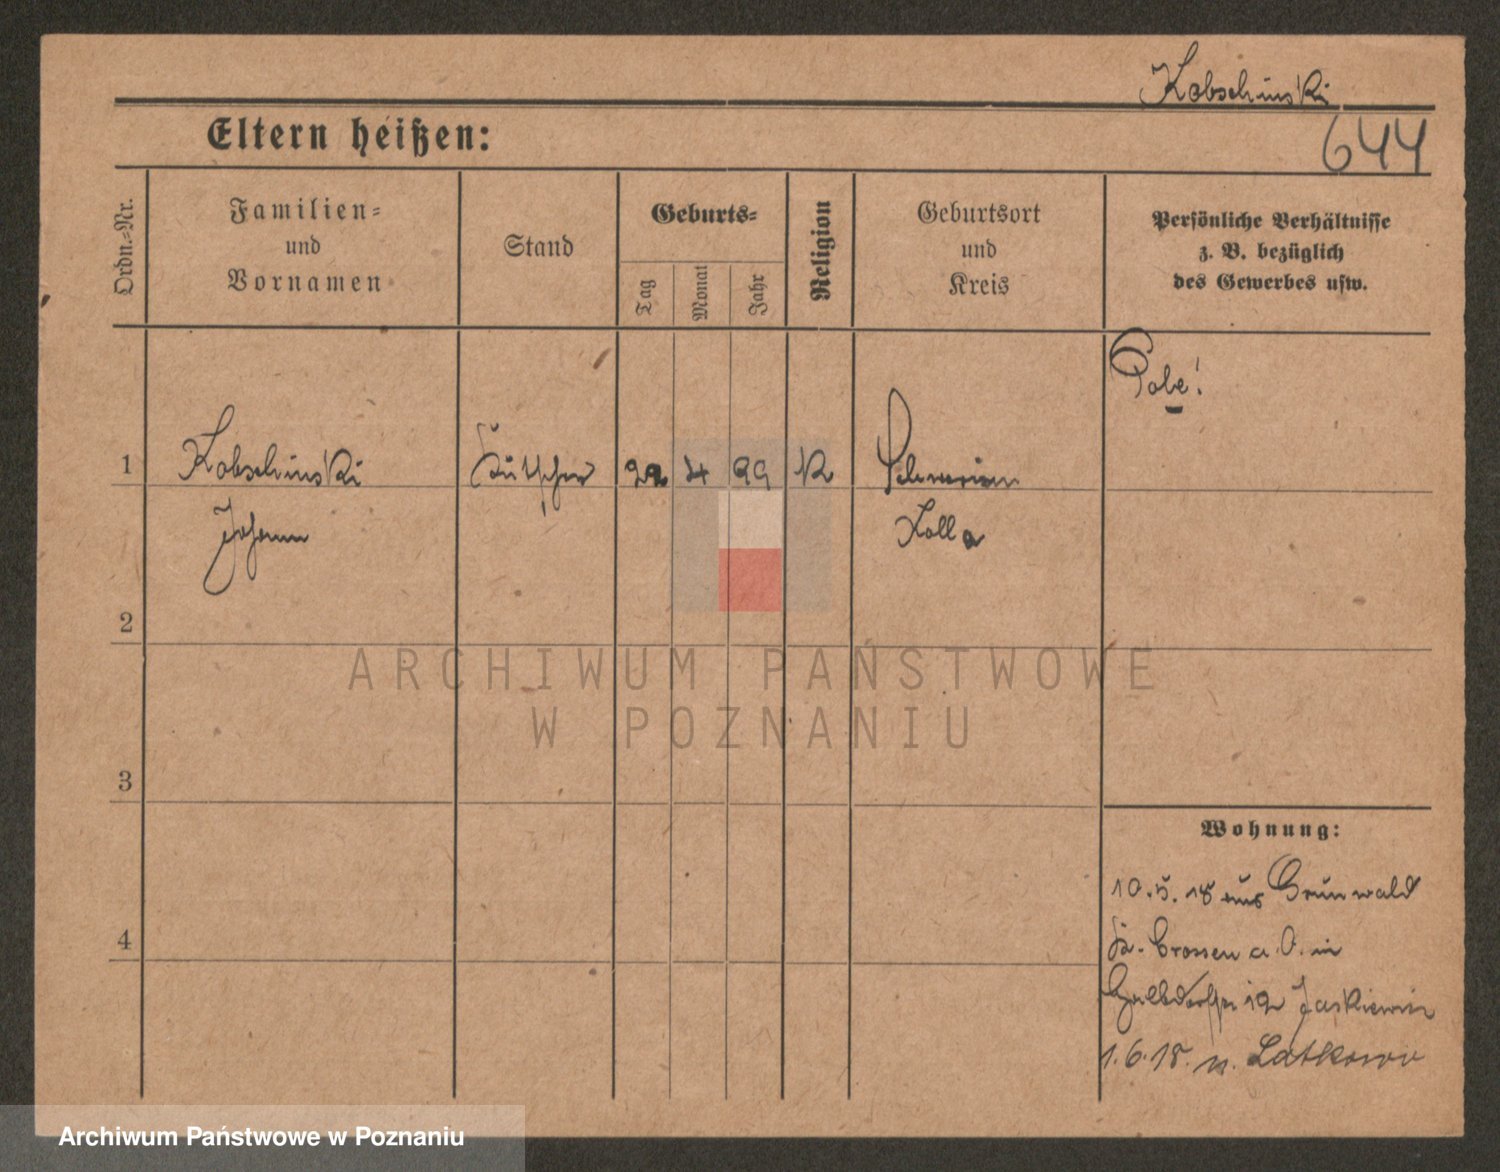 Kobschinski
Eltern heißen:
644
Ordn.-Nr.
Familien-
und
Vornamen
Stand
Geburts-
Tag
Monat
Jahr
Religion
Geburtsort
und
Kreis
Persönliche Verhältnisse
z. B. bezüglich
des Gewerbes usw.
1
Kobschinski
Kutscher
22
4
99
K
Johann
2
3
4
Wohnung:
10.5.18 aus Grunwald
Kr. Crossen a. O. in
12 Jaskiewicz
1.6.18. n. Latkowo
ARCHIWUM PAŃSTWOWE
W POZNANIU
Archiwum Państwowe w Poznaniu